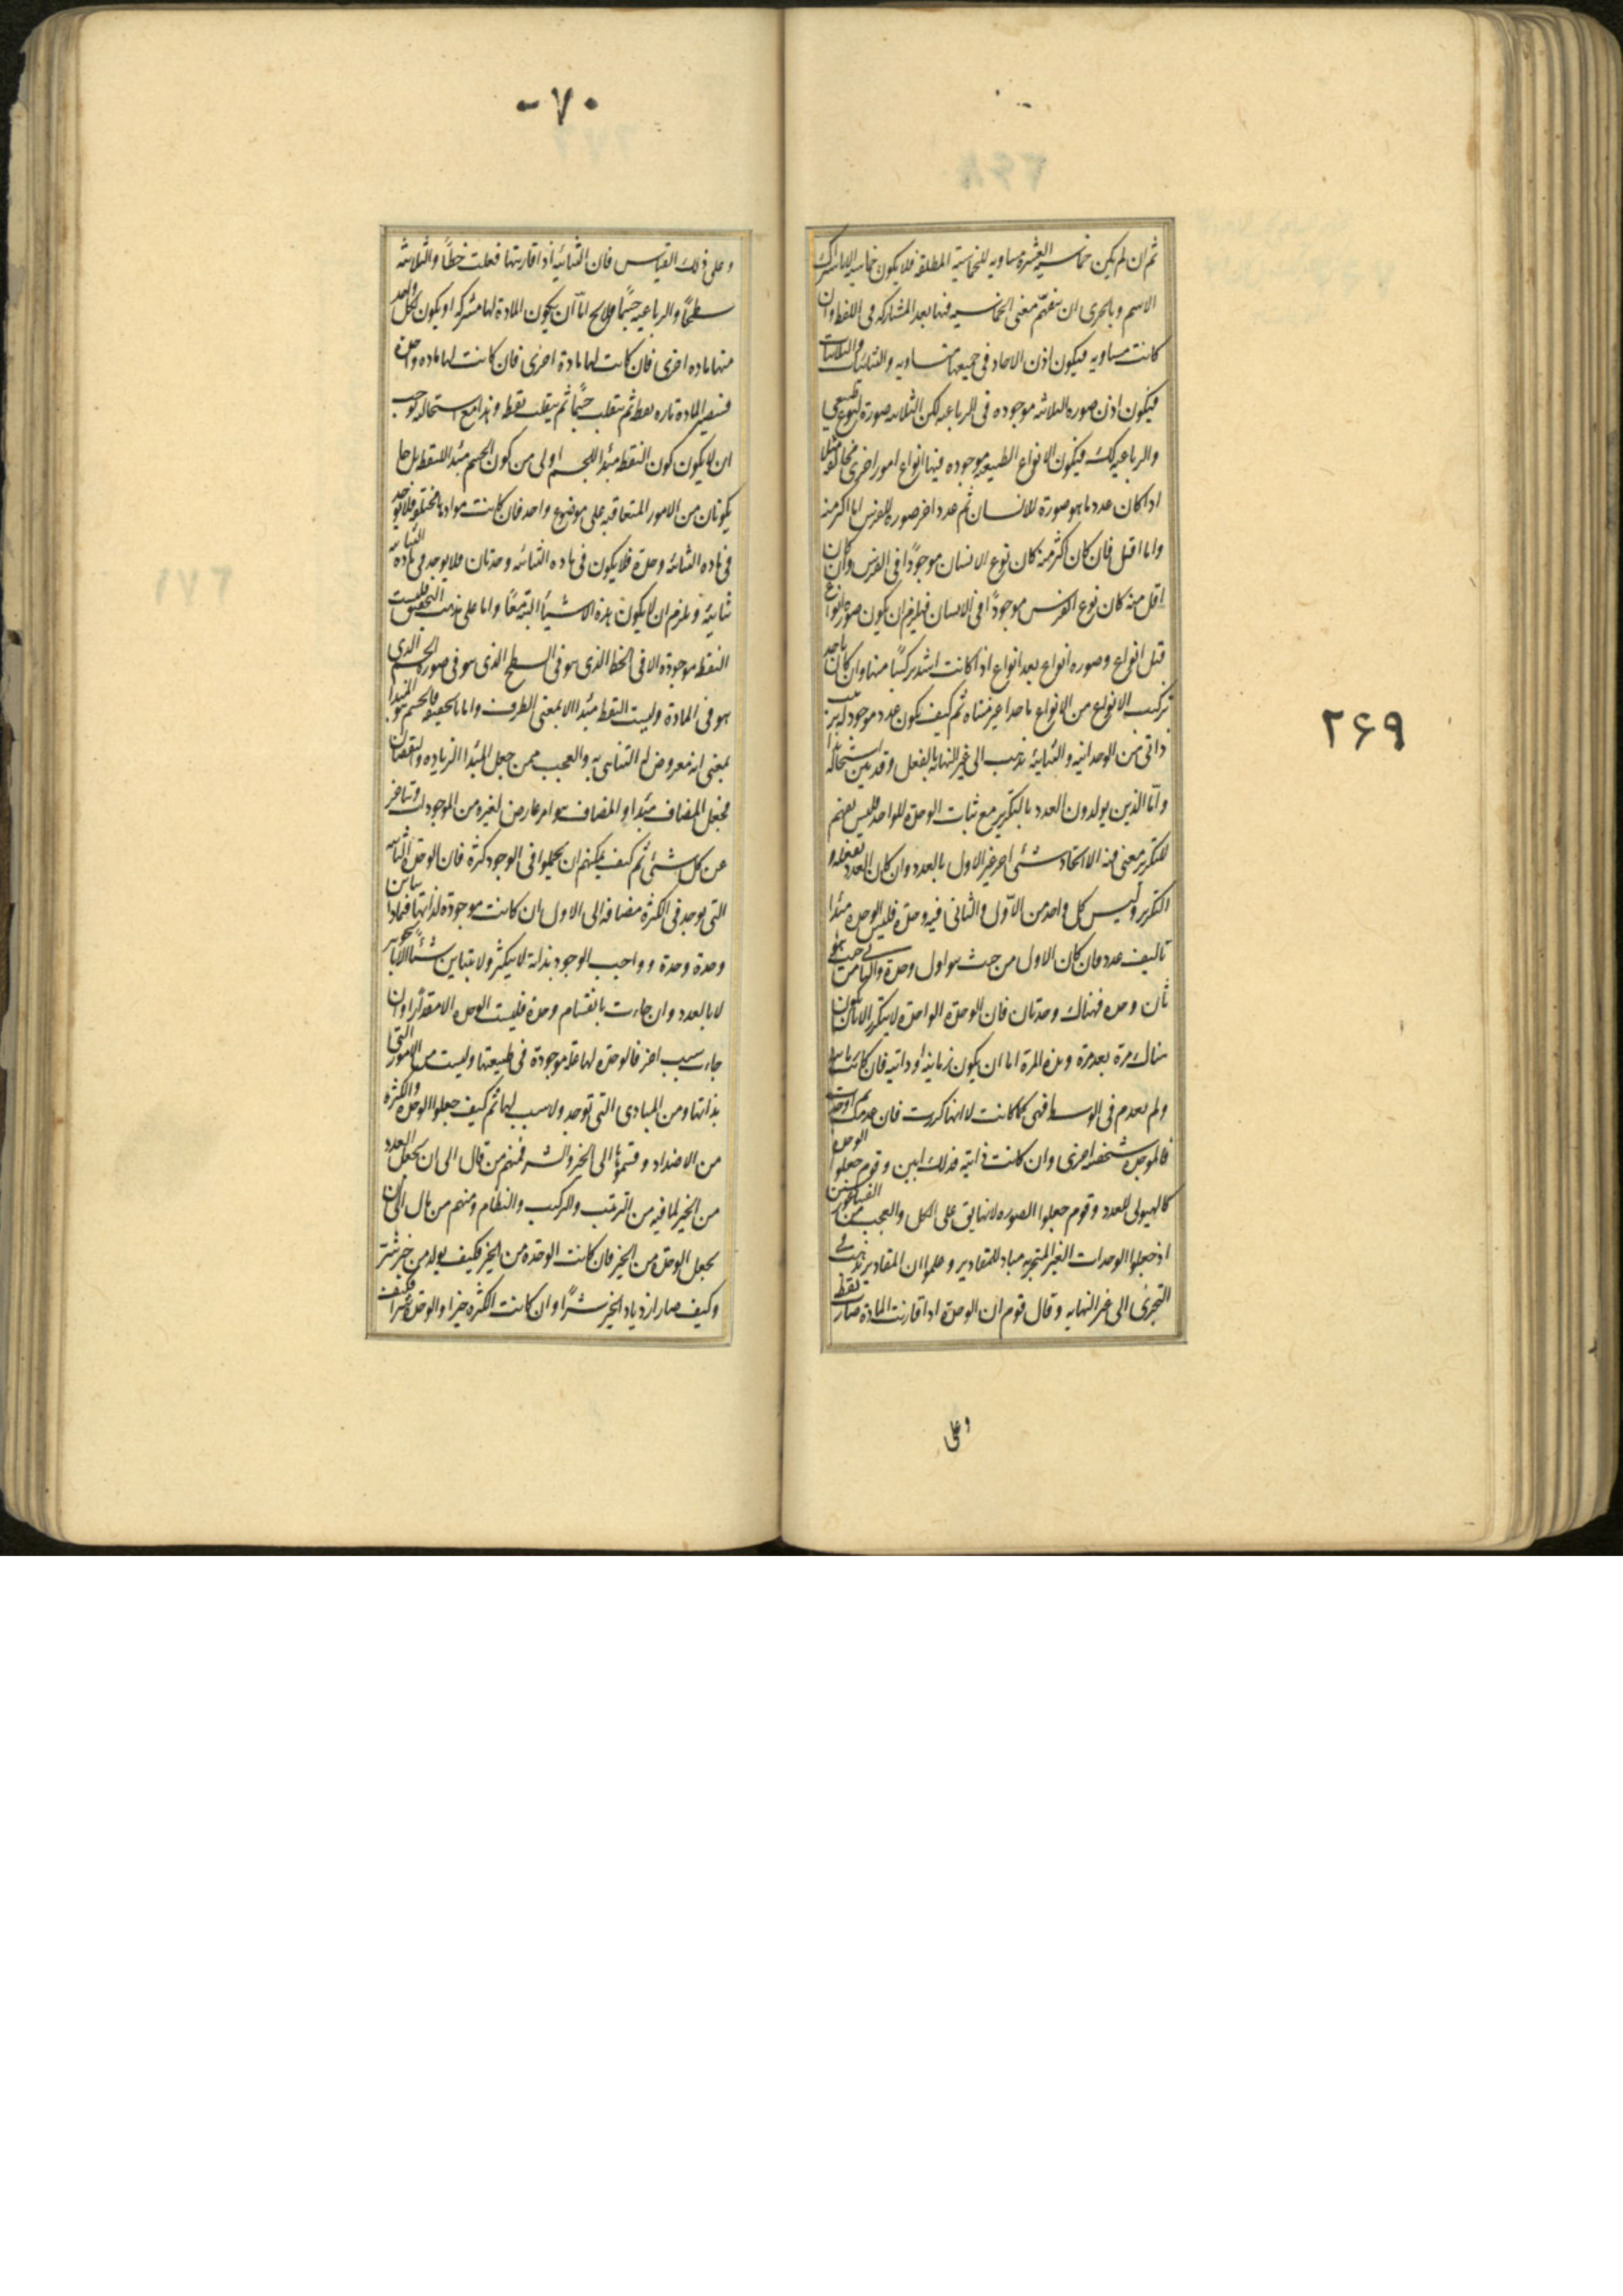 ثم ان لم يكن خماسيه العشرة مساويه للخماسية المطلقة فلا يكون خماسيه الا باشتراك
الاسم وبالحرى ان يتفهم معنى الخماسيه فيها بعد المشاركه فى اللفظ وان
كانت مساويه فيكون اذن الاحاد فى جميعها متساويه والثنائيات والثلاثيات
فيكون اذن صوره الثلاثه موجوده فى الرباعيه لكن الثلاثيه صورة لنوع طبيعى
والرباعيه كك فيكون الانواع الطبيعيه موجوده فيها انواع امور اخرى مخالفه مثلا
اذا كان عدد ما هو صورة للانسان ثم عدد اخر صوره للفرس اما اكثر منه
واما اقل فان كان اكثر منه كان نوع الانسان موجودًا فى الفرس وان كان
اقل منه كان نوع الفرس موجودًا فى الانسان فيلزم ان يكون صوره انواع
قبل انواع وصوره انواع بعد انواع اذا كانت اشد تركيبًا منها وان كان ياخذ
تركيب الانواع من الانواع ماخذا غير متناه ثم كيف يكون عدد موجود له ترتيب
ذاتى من الوحدانيه والثنائيه يذهب الى غير النهاية بالفعل وقد بين استحاله هذا
واما الذين يولدون العدد بالتكرير مع ثبات الوحدة للواحد فليس يفهم
للتكرير معنى منه الا ايجاد شئى اخر غير الاول بالعدد وان كان العدد يفعله و
التكرير وليس كل واحد من الاول والثانى فيه وحدة فليس الوحدة مبدا
تاليف عدد فان كان الاول من حيث هو اول وحدة والثانى من حيث هو
ثان وحده فهناك وحدتان فان الوحدة الواحدة لا يتكرر الا بان يكون
هناك مرة بعد مرة وهذه المرة اما ان يكون زمانيه او ذاتيه فان كانت زمانيه
ولم يعدم فى الوسط فهى كما كانت لا انها كررت فان عدمت ثم اوجدت
فالموجدة شخصية اخرى وان كانت ذاتيه فذلك ابين وقوم جعلوا الوحدة
كالهيولى للعدد وقوم جعلوا الصوره لانها يق على الكل والعجب من الفيثاغوريين
اذ جعلوا الوحدات الغير المتجزيه مباد للمقادير وعلموا ان المقادير يذهب فى
التجزى الى غير النهايه وقال قوم ان الوحدة اذا قارنت المادة صارت نقطه
وعلى
٢۶٩
-٧٠
وعلى ذلك القياس فان الثنائيه اذا قارنتها فعلت خطًا والثلاثيه
سطحًا والرباعيه جسمًا فلا يخ اما ان يكون المادة لها مشتركه او يكون لكل واحد
منها ماده اخرى فان كانت لها مادة اخرى فان كانت لها ماده واحدة
فتصير المادة تاره نقطه ثم تنقلب جسمًا ثم ينقلب نقطه وهذا مع استحاله يوجب
ان لا يكون كون النقطه مبدا للجسم اولى من كون الجسم مبدا للنقطه بل ها
يكونان من الامور المتعاقبه على موضوع واحد فان كانت موادها مختلفه فلا يوجد
فى ماده الثنائيه وحدة فلا يكون فى ماده الثنائيه وحدتان فلا يوجد فى ماده الثنائيه
ثنائيه ويلزم ان لا يكون هذه الاشياء البته معًا واما على مذهب التحقيق فليست
النقطه موجوده الا فى الخط الذى هو فى السطح الذى هو فى صوره الجسم الذى
هو فى المادة وليست النقطه مبدا الا بمعنى الطرف واما بالحقيقه فالجسم هو المبدا
بمعنى انه معروض له التناهى به والعجب ممن جعل المبدا الزياده والنقصان
فجعل المضاف مبدا والمضاف هو امر عارض لغيره من الموجودات ومتاخر
عن كل شئى ثم كيف يمكنهم ان يجعلوا فى الوجود كثرة فان الوحدة الثانيه
التى توجد فى الكثرة مضافه الى الاول ان كانت موجودة لذاتها فبماذا يباين
وحدة وحدة وواجب الوجود بذاته لا يتكثر ولا يتباين شيئًا الا بالجوهر
لا بالعدد وان جاءت بانقسام وحدة فليست الوحدة الا مقدارًا وان
جاءت بسبب اخر فالوحدة لها علة موجودة فى طبيعتها وليست من الامور التى
بذاتها ومن المبادى التى توجد ولا سبب لها ثم كيف جعلوا الوحدة والكثرة
من الاضداد وقسموها الى الخير والشر فمنهم من قال الى ان يجعل العدد
من الخير لما فيه من الترتيب والتركيب والنظام ومنهم من مال الى ان
يجعل الوحدة من الخير فان كانت الوحدة من الخير فكيف يولد من خير شر
وكيف صار ازدياد الخير شرًا وان كانت الكثره خيرا والوحدة شرًا فكيف